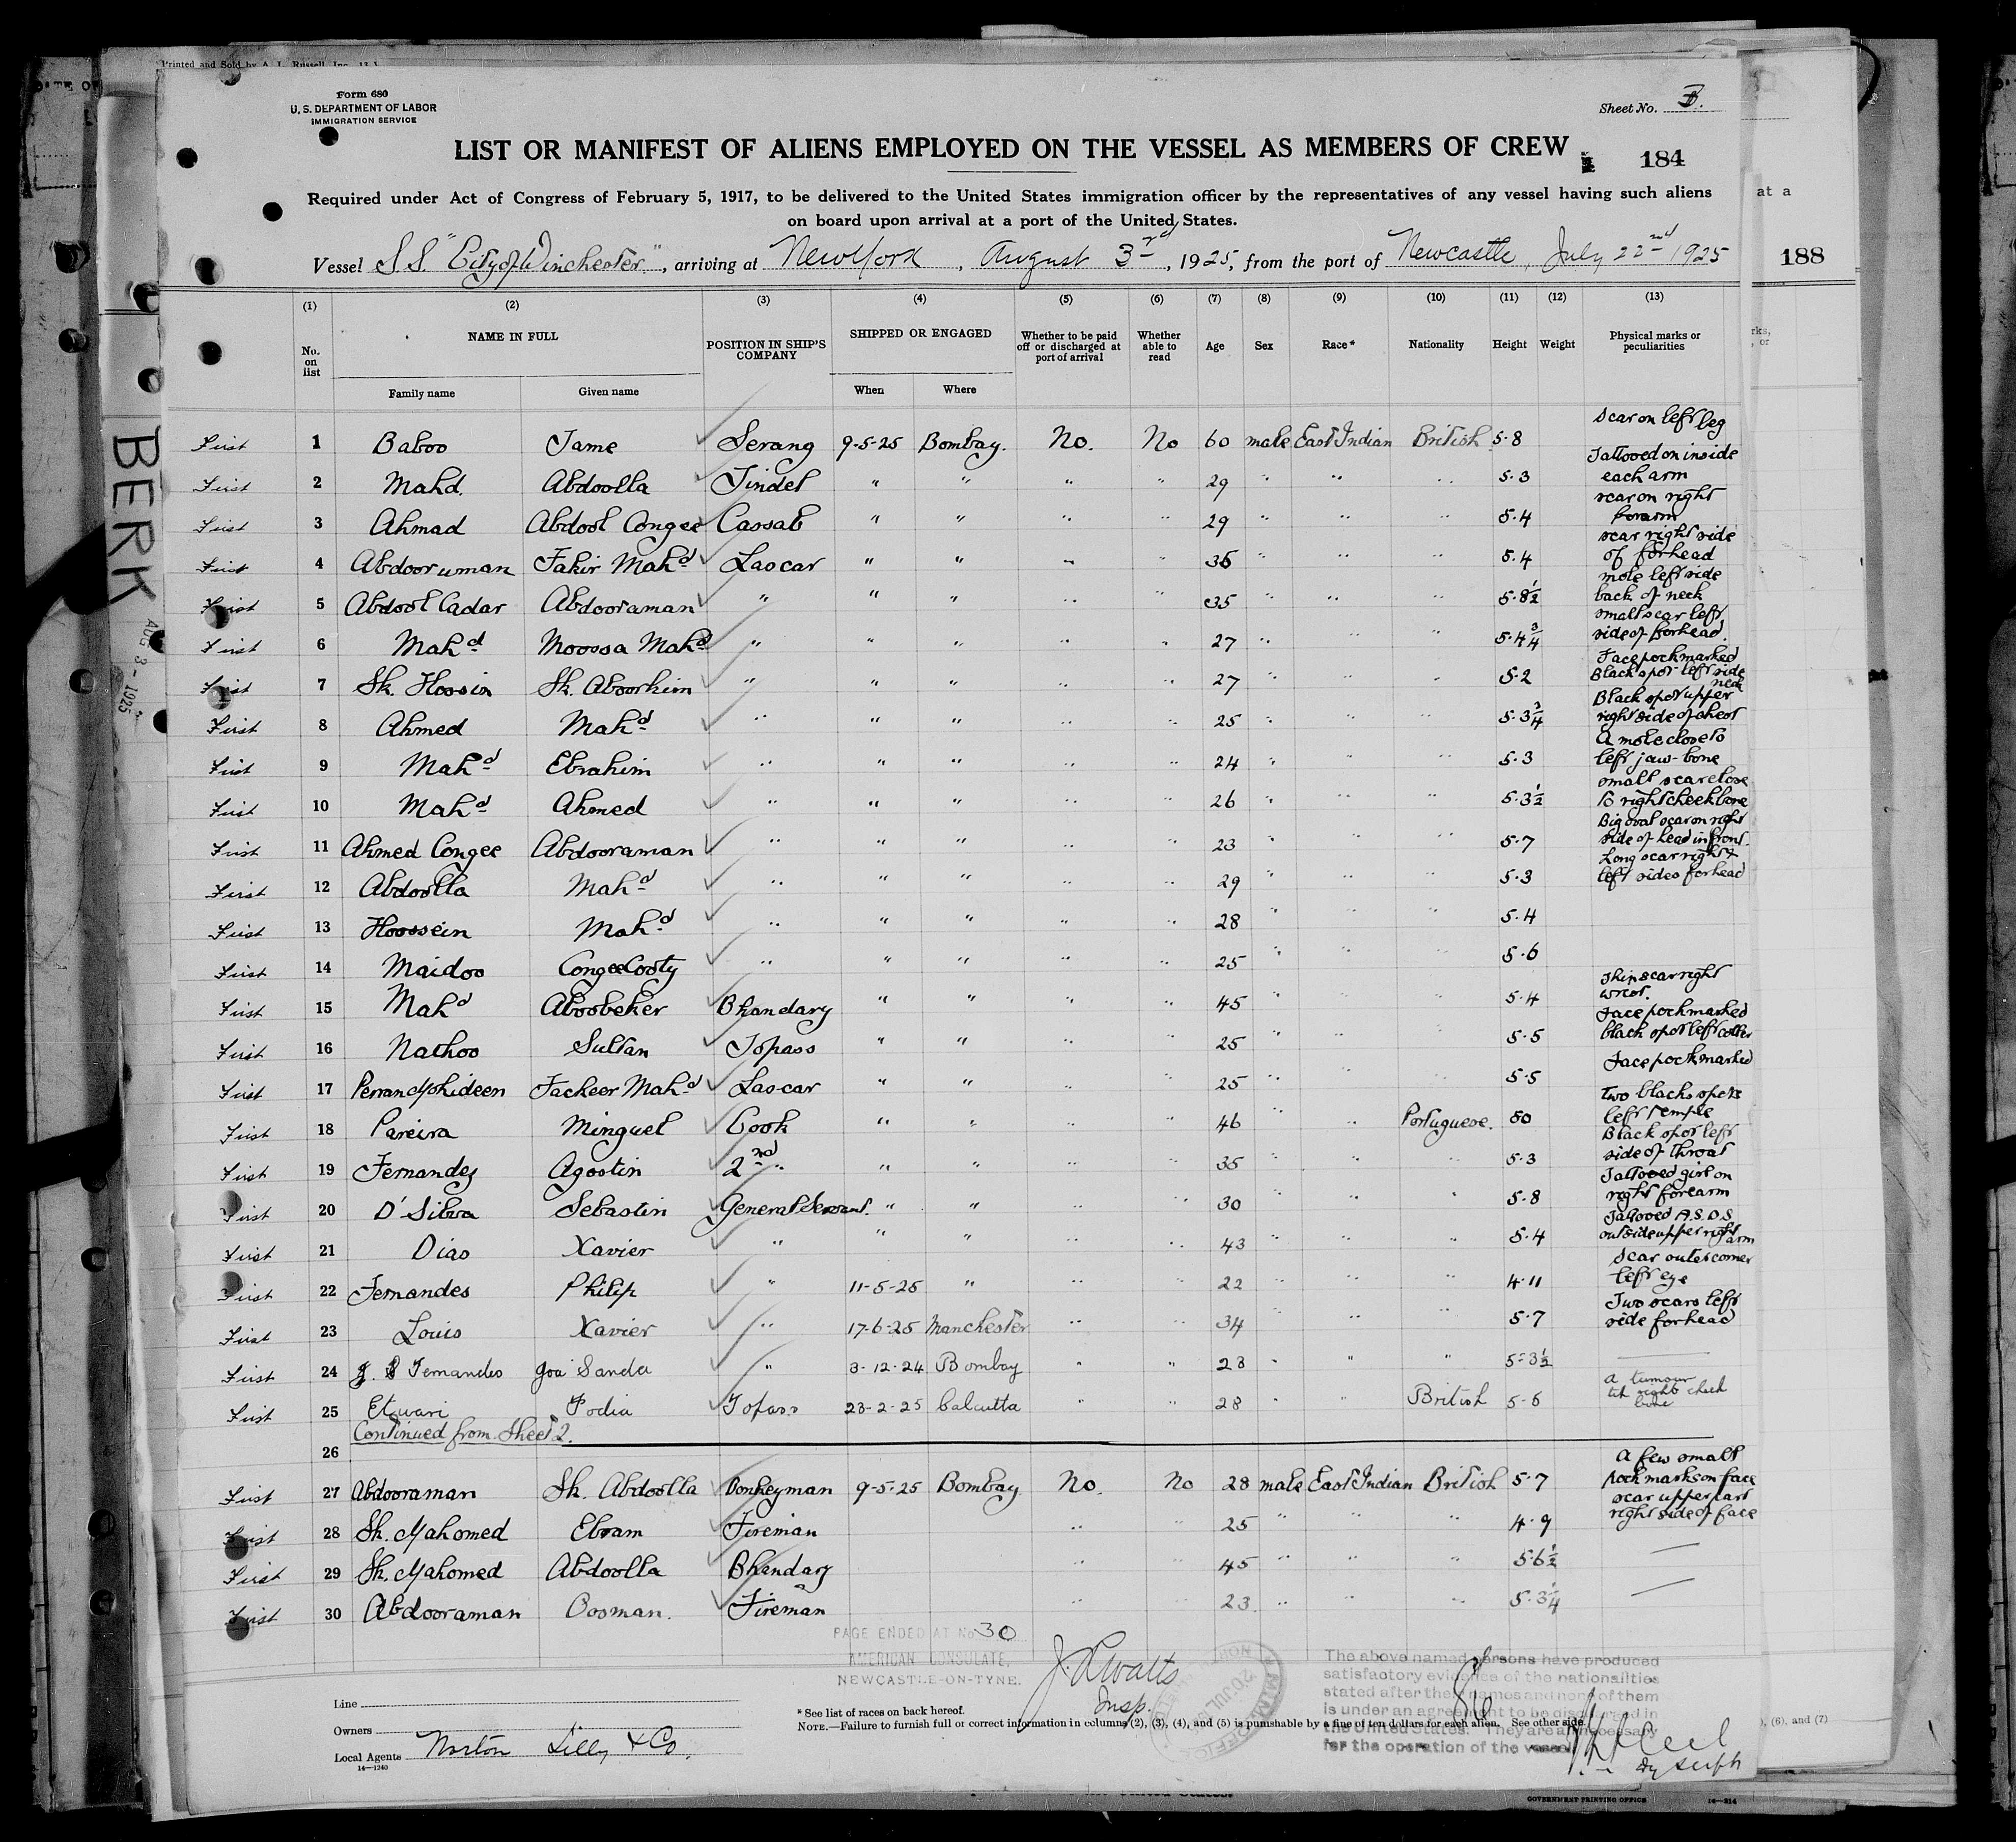 Printed and Sold by A. L. Russell, Inc.
Form 680
U. S. DEPARTMENT OF LABOR
IMMIGRATION SERVICE
Sheet No. 3.
LIST OR MANIFEST OF ALIENS EMPLOYED ON THE VESSEL AS MEMBERS OF CREW
184
Required under Act of Congress of February 5, 1917, to be delivered to the United States immigration officer by the representatives of any vessel having such aliens
on board upon arrival at a port of the United States.
at a
Vessel S.S. "City of Winchester", arriving at New York, August 3rd, 1925, from the port of Newcastle, July 22nd 1925
188
(1) (2) (3) (4) (5) (6) (7) (8) (9) (10) (11) (12) (13)
No. on list NAME IN FULL POSITION IN SHIP'S COMPANY SHIPPED OR ENGAGED Whether to be paid off or discharged at port of arrival Whether able to read Age Sex Race* Nationality Height Weight Physical marks or peculiarities
Family name Given name When Where
First 1 Baboo Jame Serang 9-5-25 Bombay. No. No 60 male East Indian British 5.8 scar on left leg
First 2 Mahd. Abdoolla Tindel " " " " 29 " " " 5.3 Tattooed on inside each arm
First 3 Ahmad Abdool Congee Cassab " " " " 29 " " " 5.4 scar on right forarm
First 4 Abdooruman Fakir Mahd Lascar " " " " 35 " " " 5.4 scar right side of forhead
First 5 Abdool Cadar Abdooraman " " " " " 35 " " " 5.8½ mole left side back of neck
First 6 Mahd Mooosa Mahd " " " " " 27 " " " 5.4¾ small scar left side of forhead.
First 7 Sk. Hoosin Sk. Aboorhim " " " " " 27 " " " 5.2 Face pockmarked Black spot left side neck
First 8 Ahmed Mahd " " " " " 25 " " " 5.3¾ Black spot upper right side of chest
First 9 Mahd Ebrahim " " " " " 24 " " " 5.3 A mole close to left jaw-bone
First 10 Mahd Ahmed " " " " " 26 " " " 5.3½ small scar close to right cheek bone
First 11 Ahmed Congee Abdooraman " " " " " 23 " " " 5.7 Big oval scar on right side of head in front.
First 12 Abdoolla Mahd " " " " " 29 " " " 5.3 Long scar right & left sides forhead
First 13 Hoossein Mahd " " " " " 28 " " " 5.4
First 14 Maidoo Congee Cooty " " " " " 25 " " " 5.6
First 15 Mahd Aboobeker Bhandary " " " " 45 " " " 5.4 Thin scar right wrist.
First 16 Nathoo Sultan Topass " " " " 25 " " " 5.5 Face pockmarked black spot left
First 17 Facheer Mahd Lascar " " " " 25 " " " 5.5 Face pockmarked
First 18 Pareira Minguel Cook " " " " 46 " " Portuguese. 50 two black spots left temple
First 19 Fernandez Agostin 2nd " " " " " 35 " " " 5.3 Black spot left side of throat
First 20 D'Silva Sebastin General Servant. " " " " 30 " " " 5.8 Tattooed girl on right forearm
First 21 Dias Xavier " " " " " 43 " " " 5.4 Tattooed A.S.D.S outside upper right arm
First 22 Fernandes Philip " 11-5-25 " " " 22 " " " 4.11 Scar outer corner left eye
First 23 Louis Xavier " 17-6-25 Manchester " " 34 " " " 5.7 Two scars left side forhead
First 24 Fernandes Joa Sanda " 3-12-24 Bombay " " 23 " " " 5-3½
First 25 Etwari Fodia Topass 23-2-25 Calcutta " " 28 " " British 5-6 a tumour right cheek bone
26 Continued from Sheet 2.
First 27 Abdooraman Sk. Abdoolla Donkeyman 9-5-25 Bombay No. No 28 male East Indian British 5.7 A few small pock marks on face
First 28 Sk. Mahomed Ebram Fireman " " 25 " " " 4.9 scar upper part right side of face
First 29 Sk. Mahomed Abdoolla Bhandary " " 45 " " " 5.6½ —
First 30 Abdooraman Oosman. Fireman " " 23 " " " 5.3¼ —
PAGE ENDED AT No 30
AMERICAN CONSULATE,
NEWCASTLE-ON-TYNE.
J. R. Watts
Insp.
The above named persons have produced
satisfactory evidence of the nationalities
stated after their names and none of them
is under an agreement to be discharged in
the United States. They are all necessary
for the operation of the vessel
Line
Owners
Local Agents Norton Lilly & Co.
14—1240
* See list of races on back hereof.
NOTE.—Failure to furnish full or correct information in columns (2), (3), (4), and (5) is punishable by a fine of ten dollars for each alien. See other side.
), (6), and (7)
GOVERNMENT PRINTING OFFICE
14—214
BERK
AUG 3 - 1925